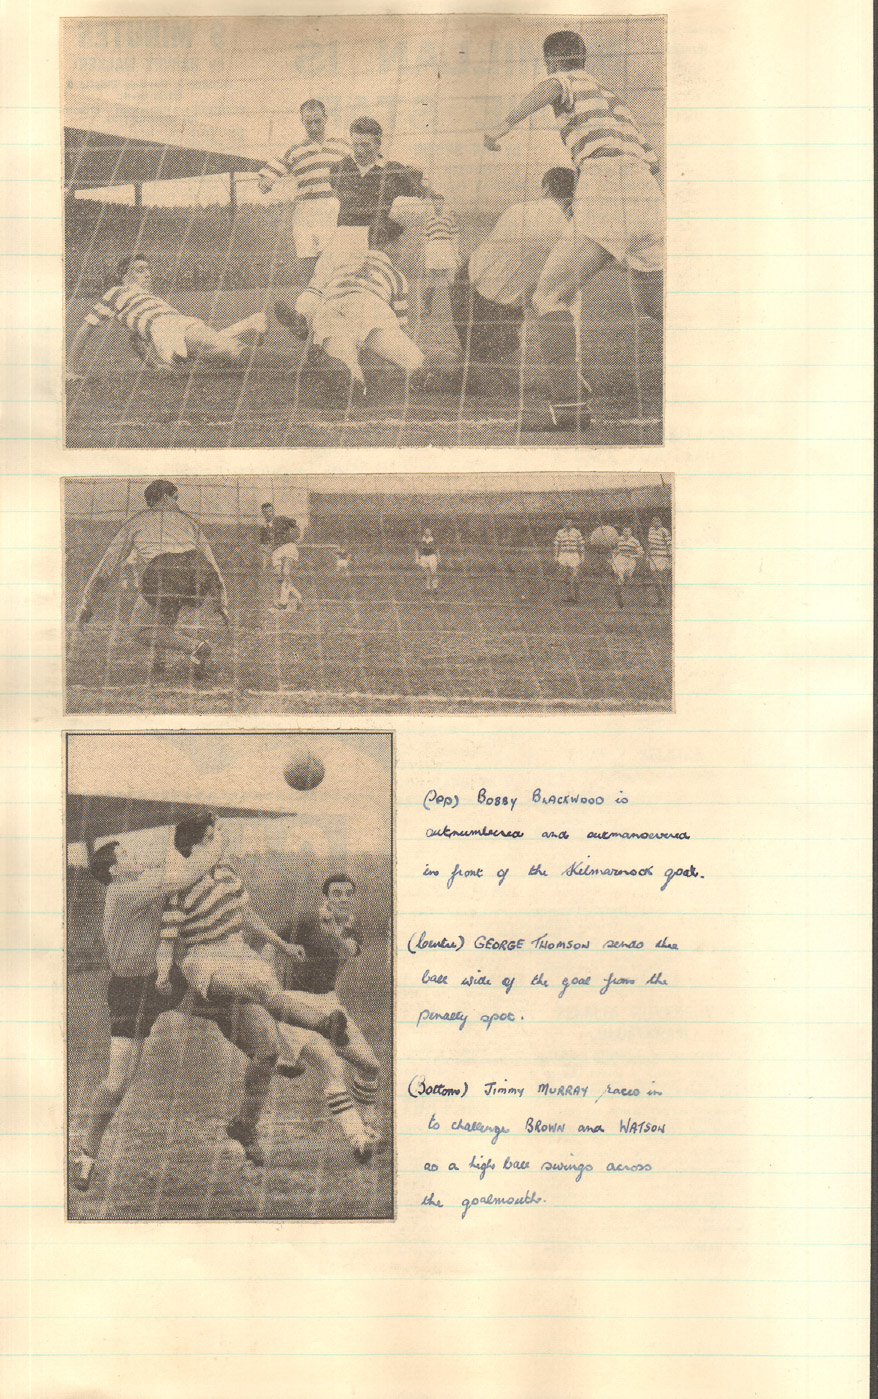 (Top) BOBBY BLACKWOOD is
outnumbered and outmanoevred
in front of the Kilmarnock goal.
(Centre) GEORGE THOMSON sends the
ball wide of the goal from the
penalty spot.
(Bottom) JIMMY MURRAY races in
to challenge BROWN and WATSON
as a high ball swings across
the goalmouth.